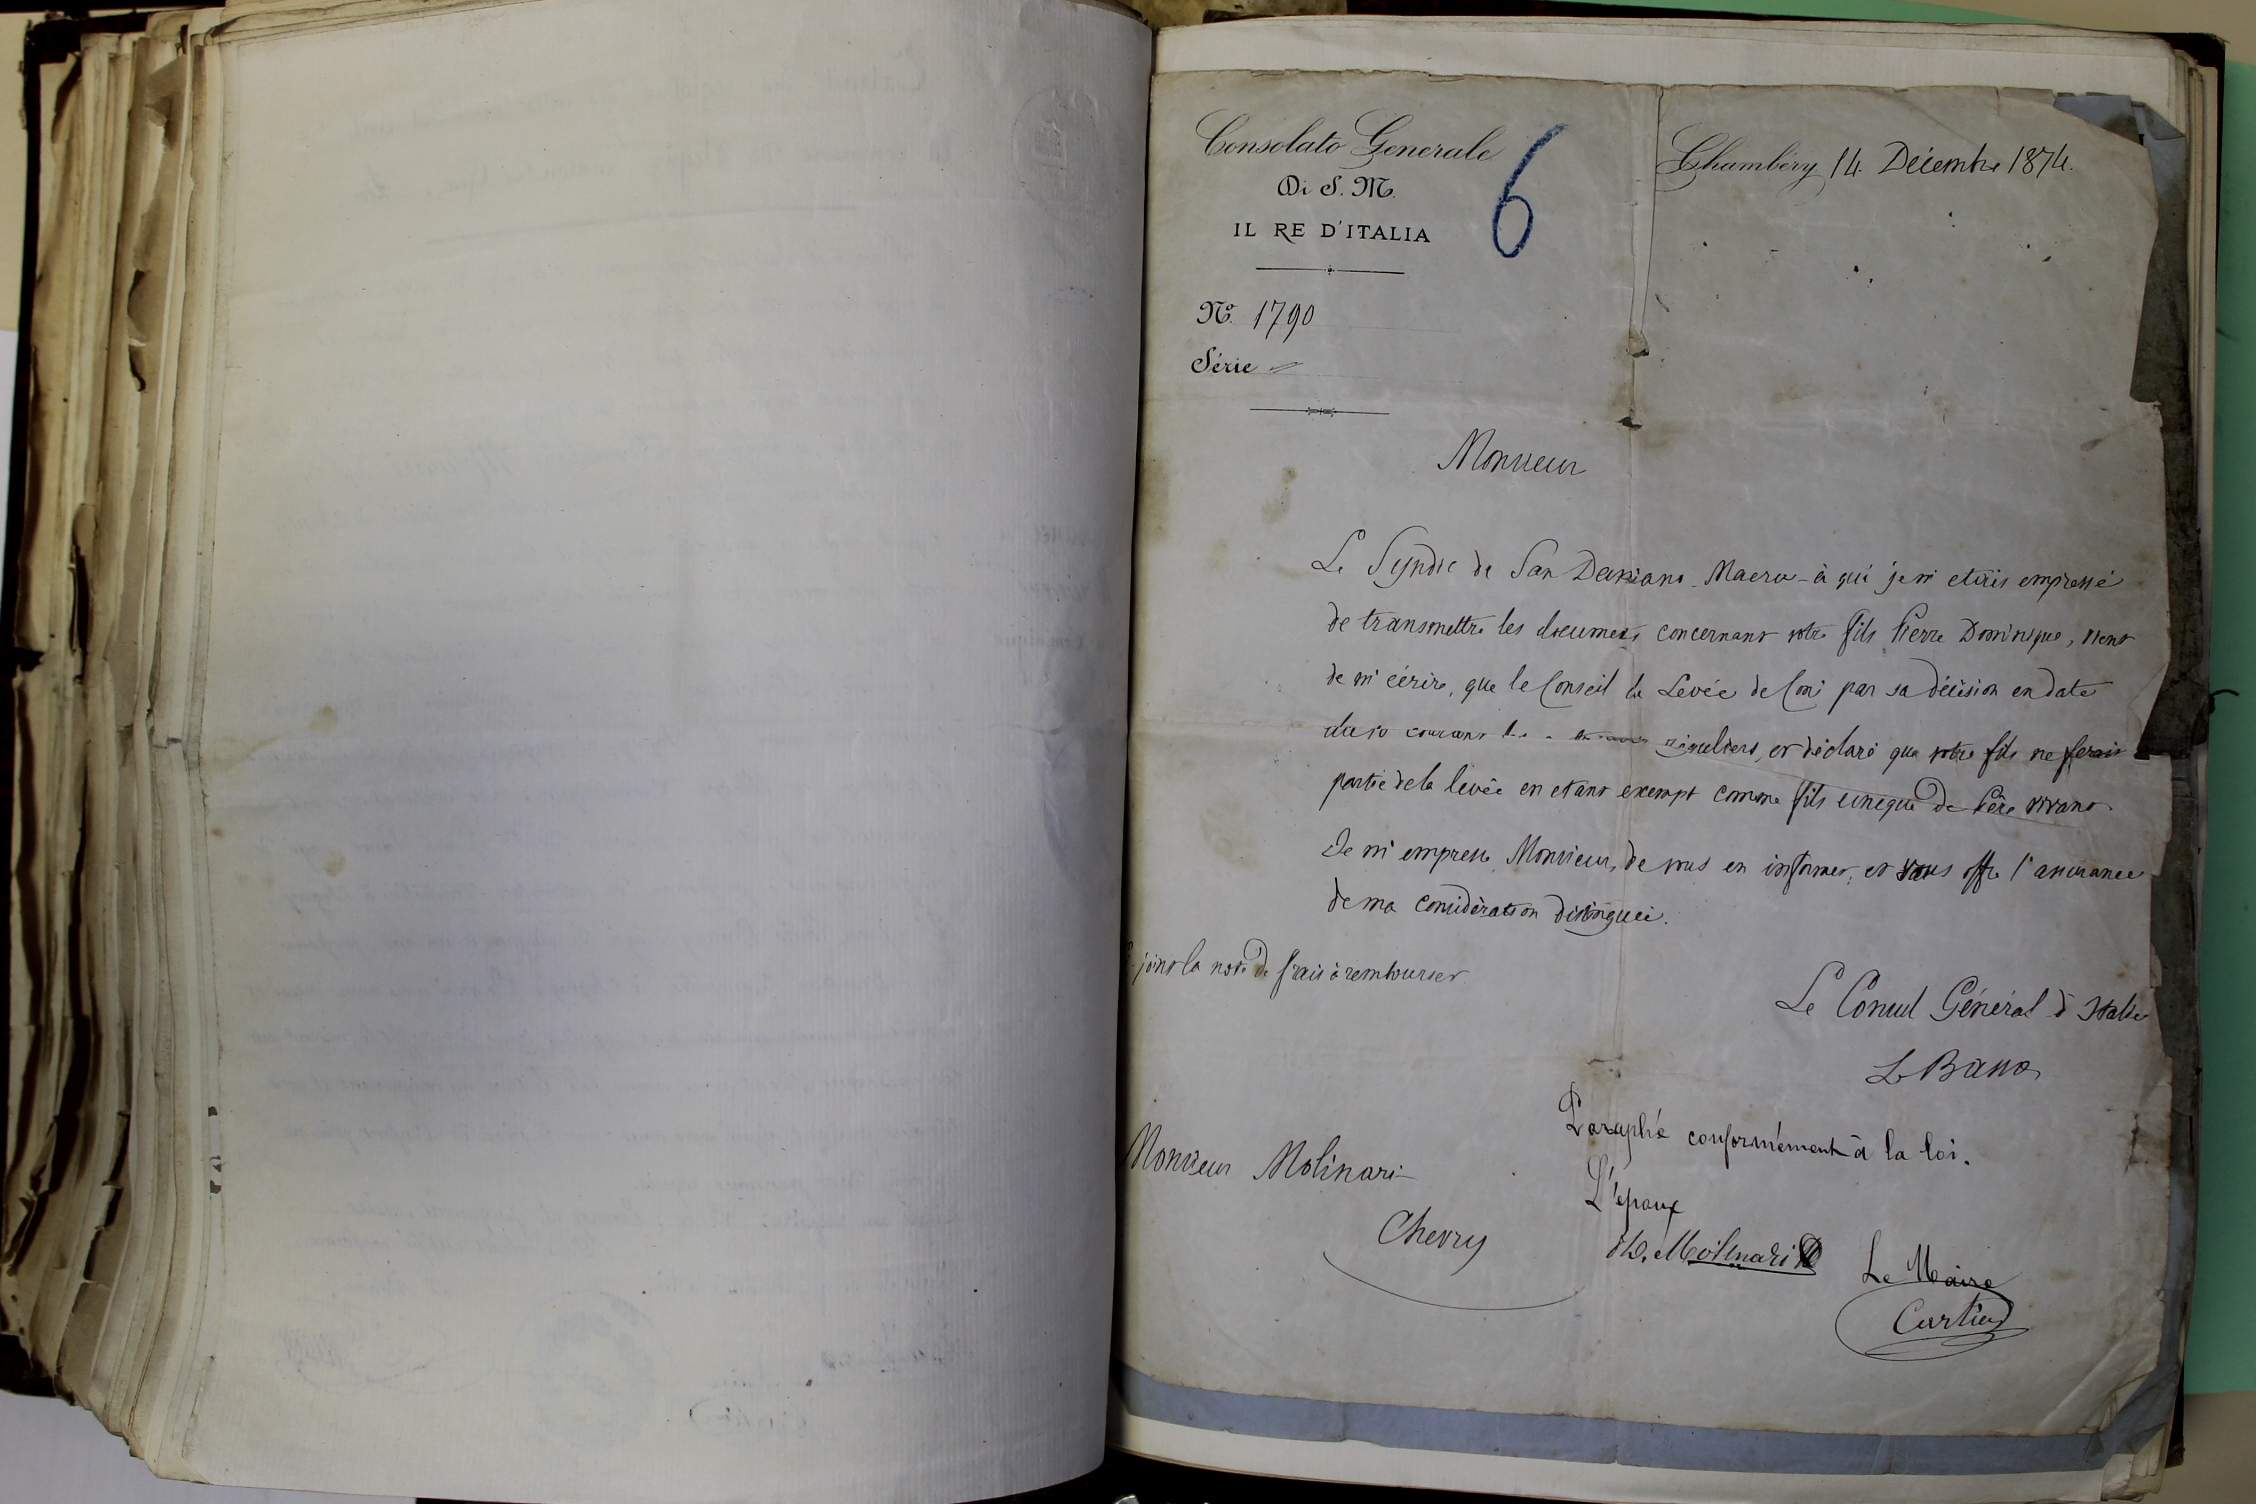 Consolato Generale
Di S. M.
IL RE D'ITALIA
6
Chambéry, 14. Décembre 1874.
No. 1790
Série
Monsieur
Le Syndic de San Damiano-Macra - à qui je m'etais empressé
de transmettre les documens concernant votre fils Pierre Dominique, vient
de m'écrire, que le Conseil de Levée de Coni par sa décision en date
du 10 courant et déclaré que votre fils ne ferait
partie de la levée en etant exempt comme fils unique de Père vivant.
Je m'empresse, Monsieur, de vous en informer, et vous offre l'assurance
de ma considération distinguée.
joint la note de frais à rembourser
Le Consul Général d'Italie
Paraphé conformément à la loi.
Monsieur Molinari
L'époux
Chevry
D. Molinari
Le Maire